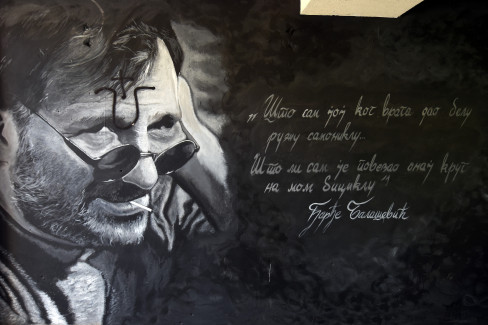 „Што сам јој код врата дао белу
ружу самониклу..
Што ли сам је повезао онај круг
на мом бициклу"
Ђорђе Балашевић
U